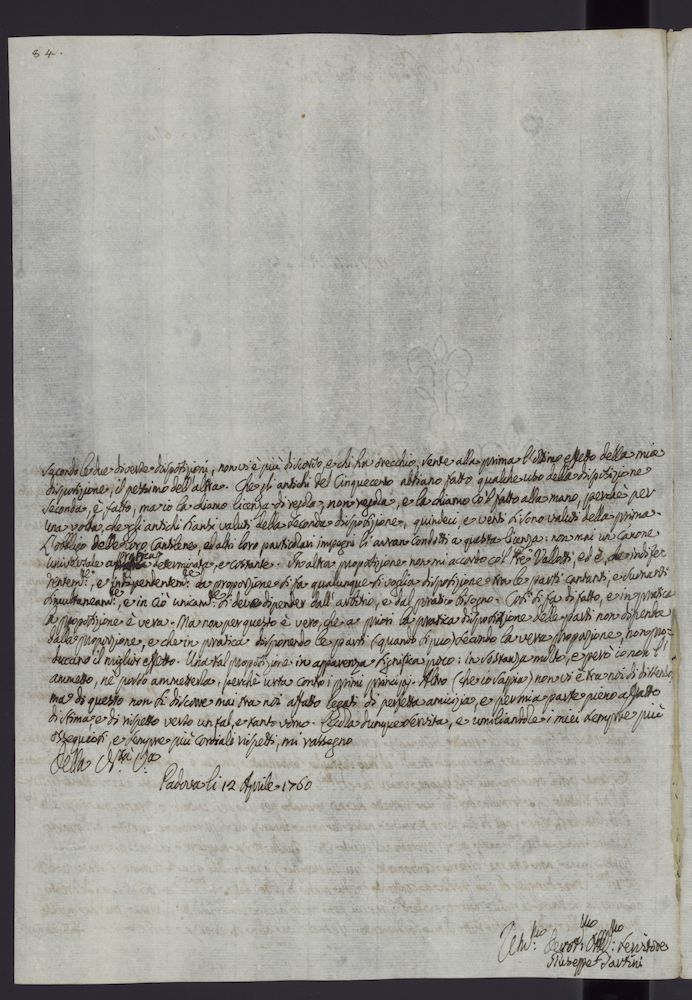 84.
secondo le due diverse disposizioni, non vi è più discorso, e chi ha orecchio, sente alla prima l'ottimo effetto della mia
disposizione, il pessimo dell'altra. Che gl'antichi del Cinquecento abbiano fatto qualche uso della disposizione
seconda, è fatto, ma io la chiamo licenza di regola, non regola, e la chiamo col fatto alla mano, perchè per
una volta, che gl'antichi si sono valuti della seconda disposizione, quindeci, e venti si sono valuti della prima.
L'obbligo delle loro Cantilene, ed altri loro particolari impegni li avran condotti a questa licenza: non mai un Canone
universale a pratica determinata, e costante. Un'altra proposizione non mi accorda col Pre Vallotti, ed è, che indiffe
rentemte, e indipendentemte da proporzione si fa qualunque si voglia disposizione tra le parti cantanti, e suonanti
simultaneamte, e in ciò unicamte si deve dipender dall'arbitrio, e dal pratico bisogno. Così si fa di fatto, e in pratica
la proposizione è vera. Ma non per questo è vero, che a priori la pratica disposizione delle parti non dipenda
dalla proporzione, e che in pratica disponendo le parti (quando si può) secondo la vera proporzione, non pro-
ducano il miglior effetto. Una tal proposizione in apparenza significa poco: in sostanza molto, e però io non l'
ammetto, nè posso ammetterla, perchè urta contro i primi principj. Altro (che io sappia) non vi è tra noi di dissenso,
ma di questo non si discorre mai tra noi affatto legati di perfetta amicizia, e per mia parte pieno affatto
di stima, e di rispetto verso un tal, e tanto uomo. Scusi dunque servita, e umiliandole i miei sempre più
ossequiosi, e sempre più cordiali rispetti, mi rassegno
Della P.tà V.ra
Padova li 12 Aprile 1760
Umilmo Devotmo Obbligmo Servitore
Giuseppe Tartini